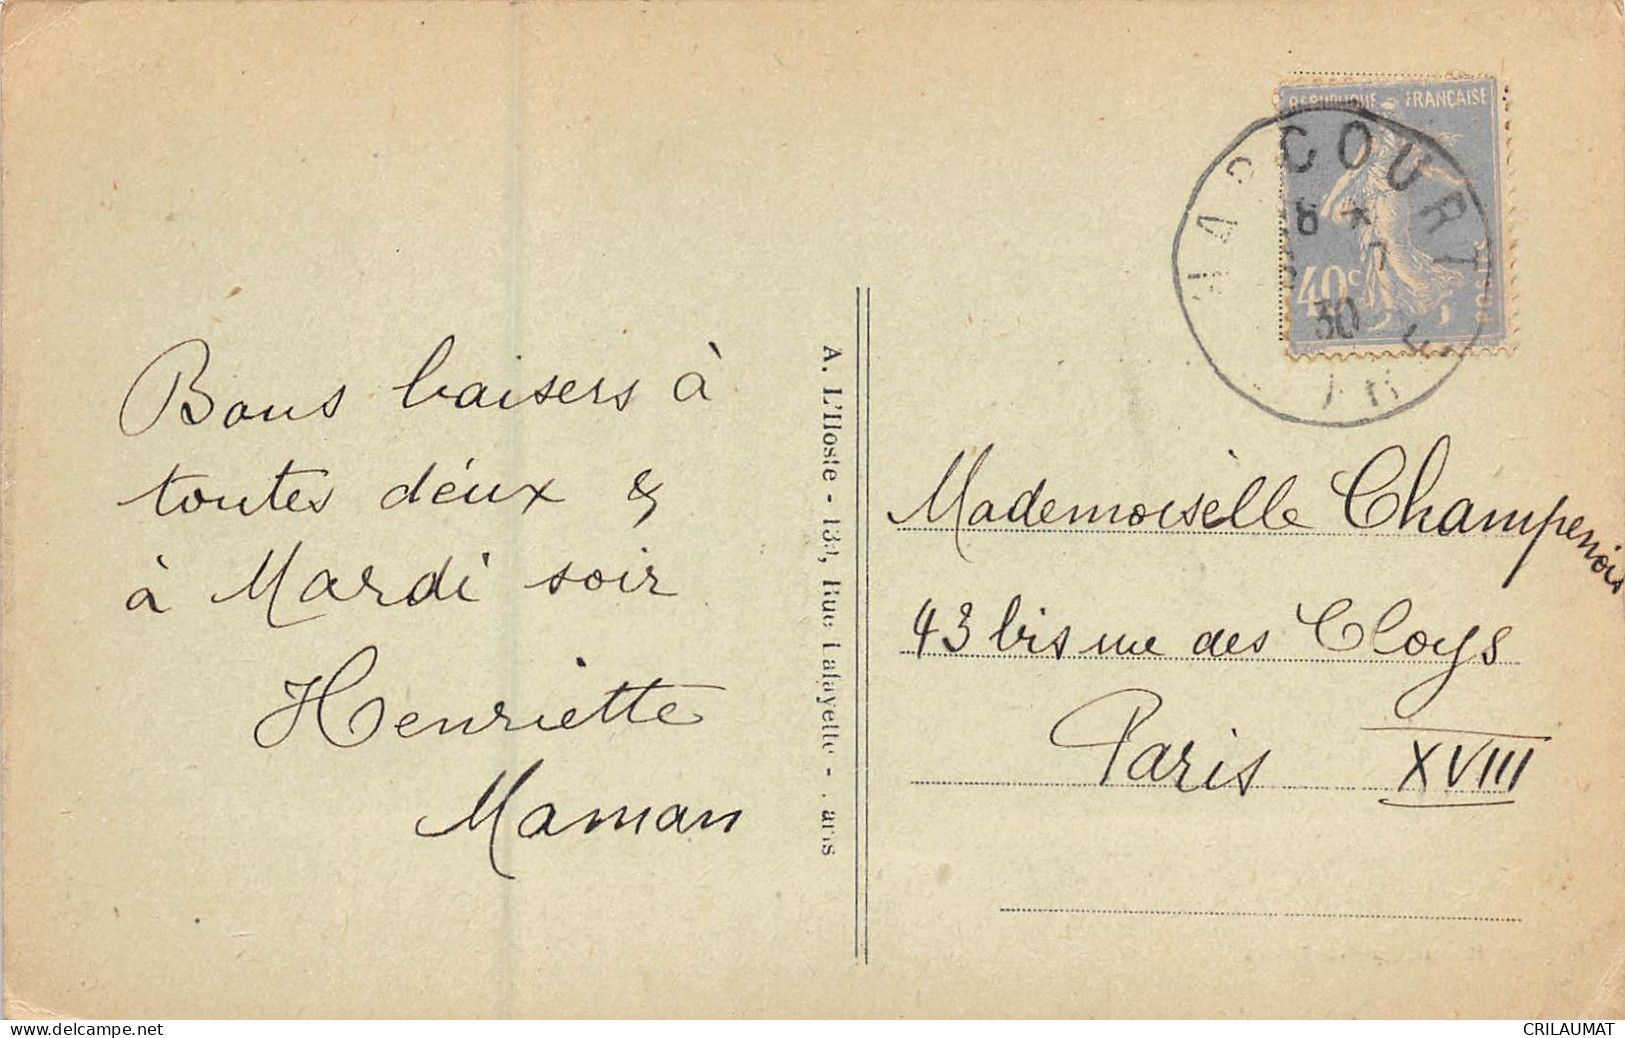 Bons baisers à
toutes deux &
à Mardi soir
Henriette
Maman
A. L'Hoste - Rue Lafayette -
REPUBLIQUE FRANÇAISE
POSTES
40c
COURT
30
Mademoiselle Champenois
43 bis rue des Cloys
Paris XVIII
www.delcampe.net
CRILAUMAT